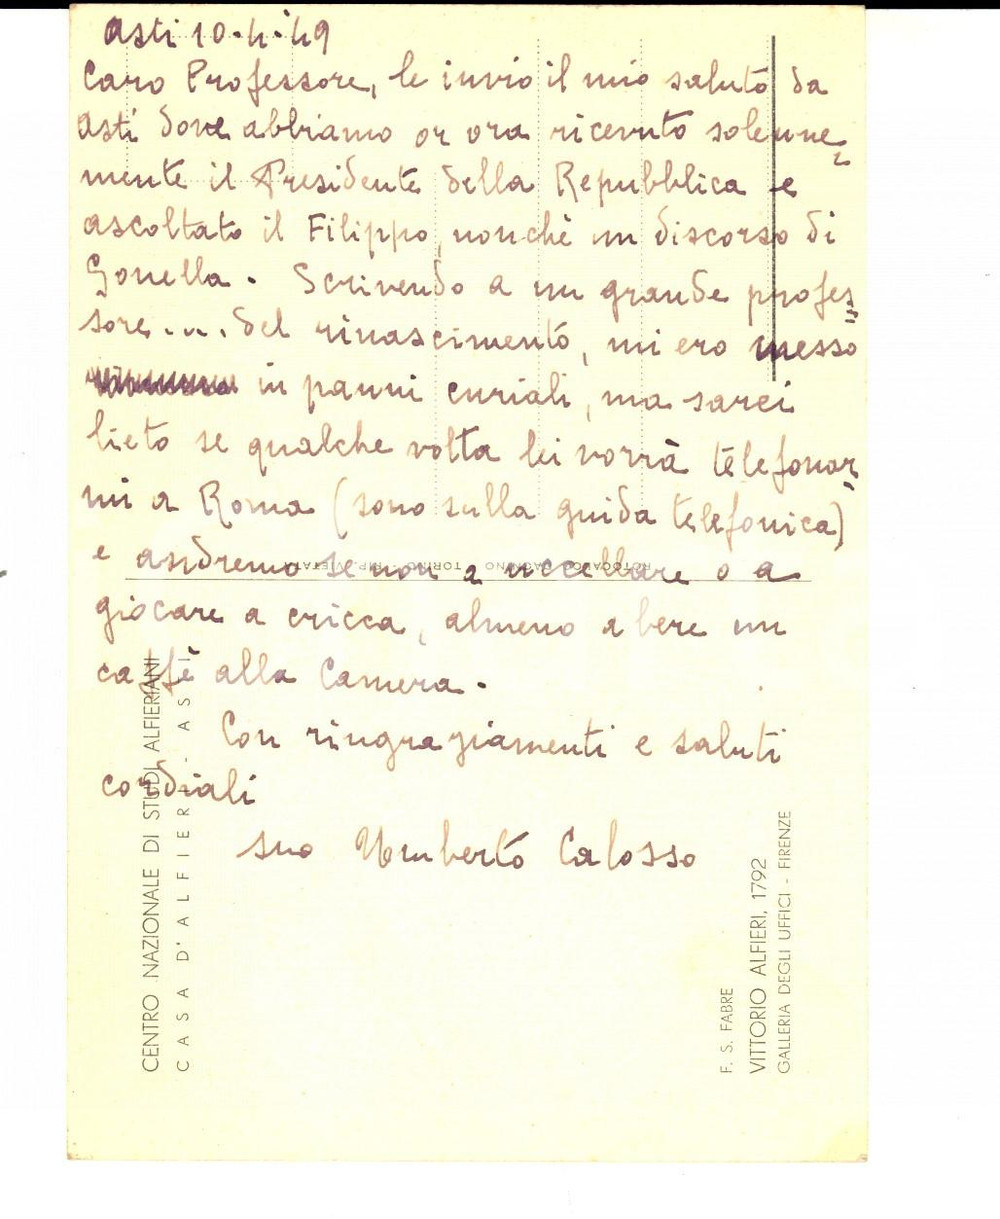 Asti 10-4-49
Caro Professore, le invio il mio saluto da
Asti dove abbiamo or ora ricevuto solenne=
mente il Presidente della Repubblica e
ascoltato il Filippo, nonchè un discorso di
Gonella. Scrivendo a un grande profes=
sore.... del rinascimento, mi ero messo
in panni curiali, ma sarei
lieto se qualche volta lei vorrà telefonar=
mi a Roma (sono sulla guida telefonica)
e andremo se non a uccellare o a
giocare a cricca, almeno a bere un
caffè alla Camera.
Con ringraziamenti e saluti
cordiali
suo Umberto Calosso
ROTOCALCO DAGNINO - TORINO - RIP. VIETATA
CENTRO NAZIONALE DI STUDI ALFIERIANI
CASA D'ALFIERI - ASTI
F. S. FABRE
VITTORIO ALFIERI, 1792
GALLERIA DEGLI UFFICI - FIRENZE